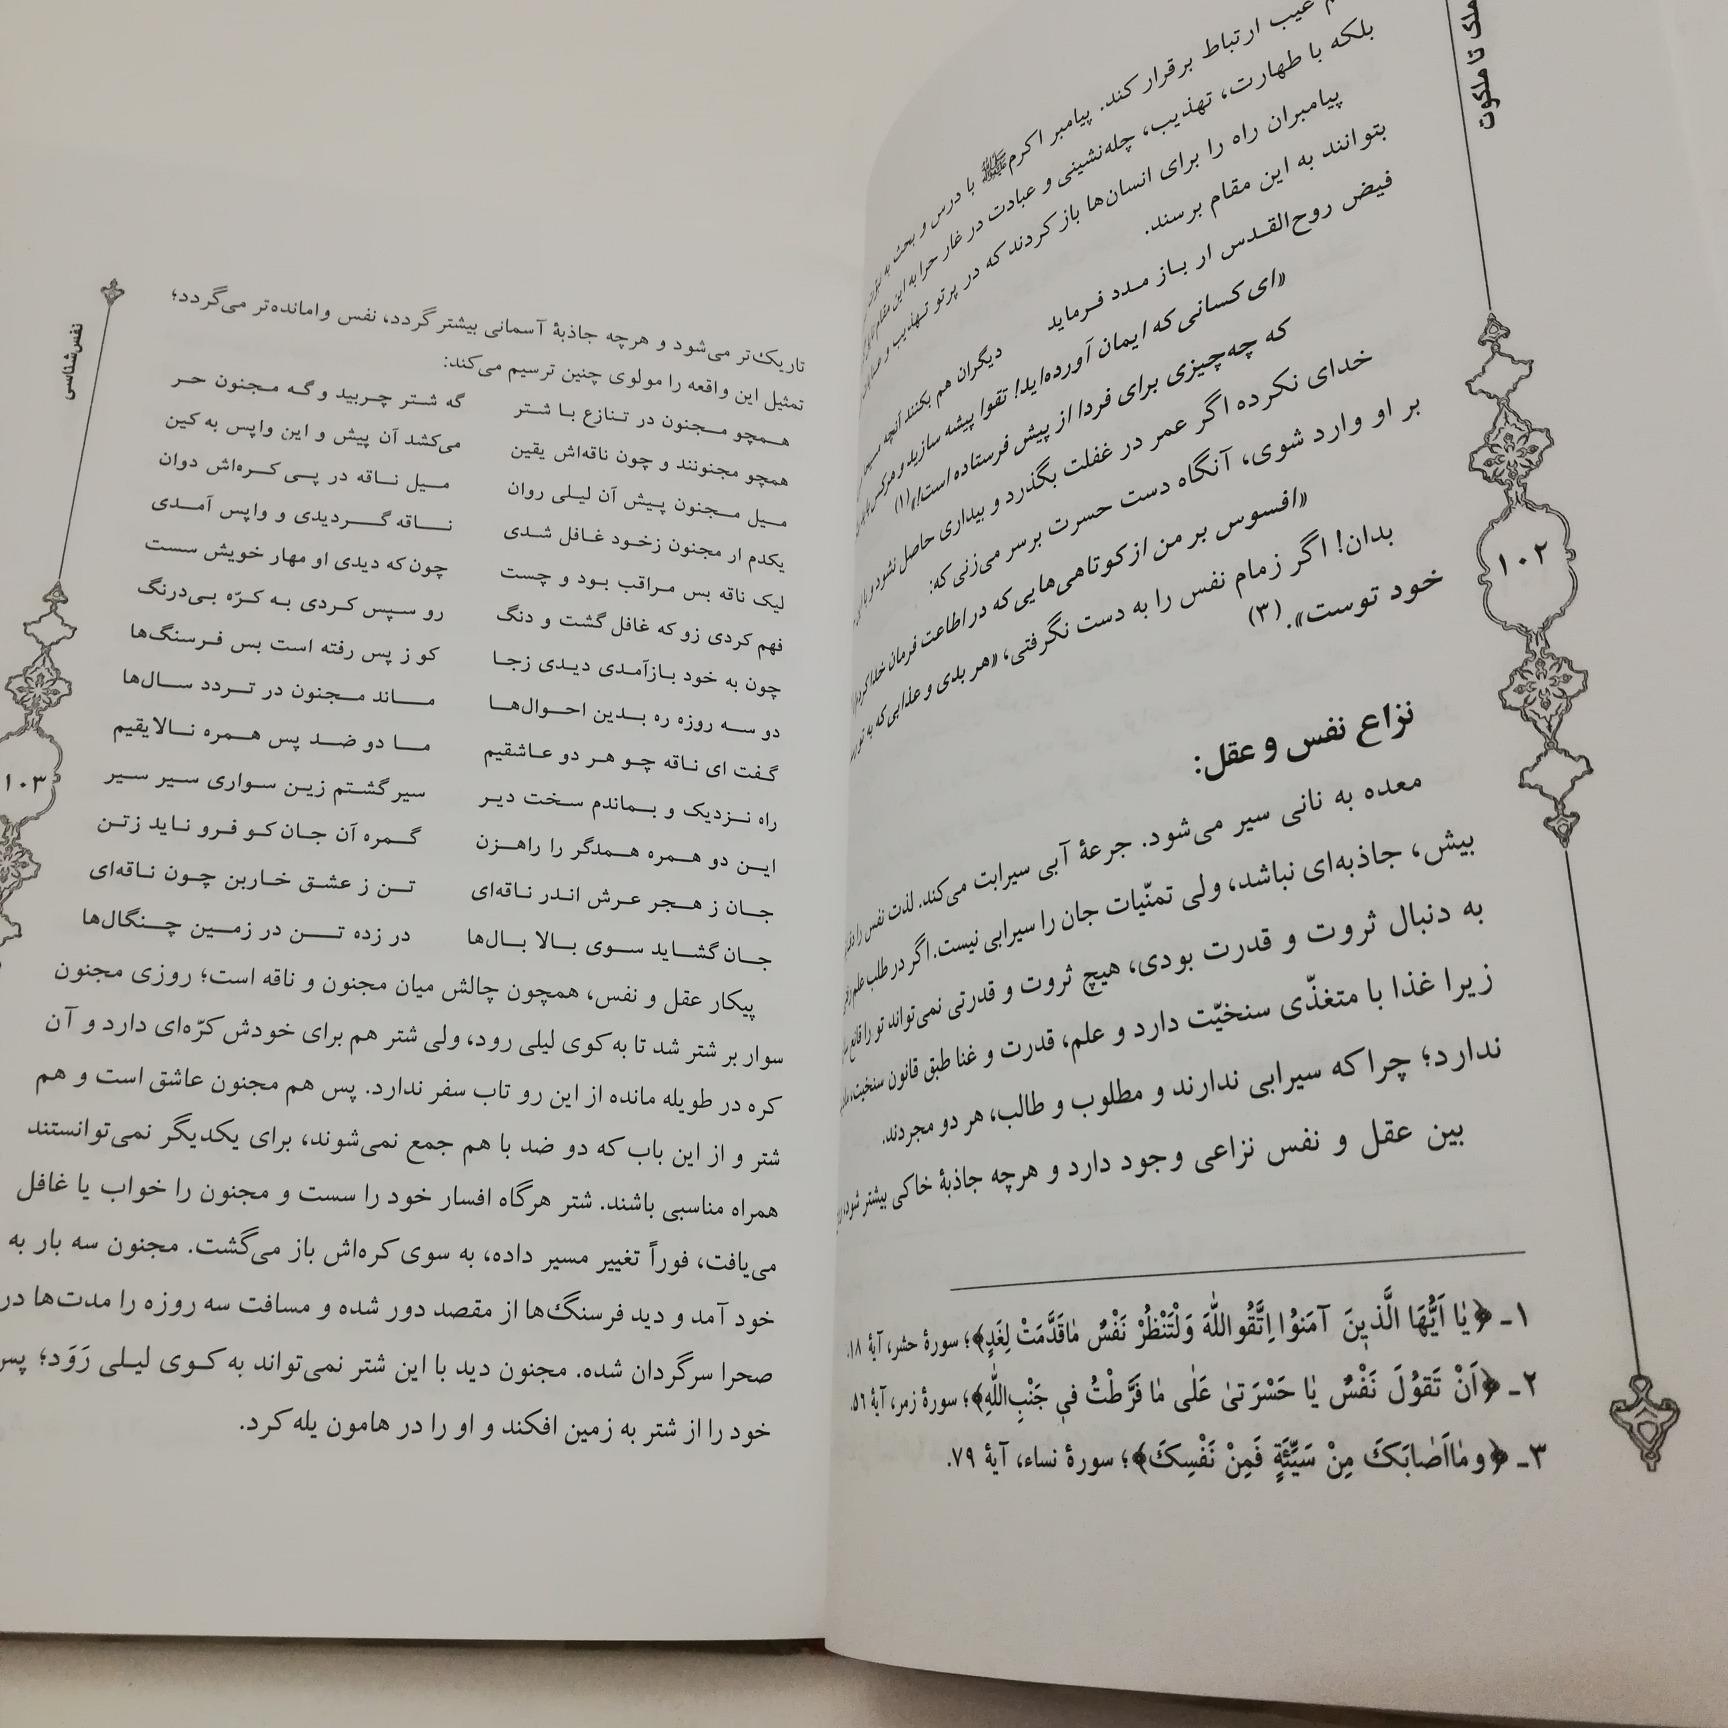 ملک تا ملکوت
غیب ارتباط برقرار کند. پیامبر اکرم ﷺ با درس و بحث به
بلکه با طهارت، تهذیب، چله‌نشینی و عبادت در غار حرا به این مقام
پیامبران راه را برای انسان‌ها باز کردند که در پرتو تهذیب و
بتوانند به این مقام برسند.
فیض روح‌القدس ار باز مدد فرماید
دیگران هم بکنند آنچه مسیحا
«ای کسانی که ایمان آورده‌اید! تقوا پیشه سازید و هر کس
که چه‌چیزی برای فردا از پیش فرستاده است!»(۱)
خدای نکرده اگر عمر در غفلت بگذرد و بیداری حاصل نشود و
بر او وارد شوی، آنگاه دست حسرت برسر می‌زنی که:
«افسوس بر من از کوتاهی‌هایی که در اطاعت فرمان خدا
بدان! اگر زمام نفس را به دست نگرفتی، «هر بدی و عذابی که به تو
خود توست».(۳)
نزاع نفس و عقل:
معده به نانی سیر می‌شود. جرعهٔ آبی سیرابت می‌کند. لذت نفس را
بیش، جاذبه‌ای نباشد، ولی تمنّیات جان را سیرابی نیست. اگر در طلب علم
به دنبال ثروت و قدرت بودی، هیچ ثروت و قدرتی نمی‌تواند تو را قانع
زیرا غذا با متغذّی سنخیّت دارد و علم، قدرت و غنا طبق قانون سنخیت،
ندارد؛ چرا که سیرابی ندارند و مطلوب و طالب، هر دو مجردند.
بین عقل و نفس نزاعی وجود دارد و هرچه جاذبهٔ خاکی بیشتر شود،
۱ـ ﴿یٰا اَیُّهَا الَّذینَ آمَنُوا اِتَّقُوا اللّٰهَ وَلْتَنْظُرْ نَفْسٌ مٰاقَدَّمَتْ لِغَدٍ﴾؛ سورهٔ حشر، آیهٔ ۱۸.
۲ـ ﴿اَنْ تَقوُلَ نَفْسٌ یٰا حَسْرَتیٰ عَلٰی مٰا فَرَّطْتُ فی جَنْبِ‌اللّٰهِ﴾؛ سورهٔ زمر، آیهٔ ۵۶.
۳ـ ﴿و مٰااَصٰابَکَ مِنْ سَیِّئَةٍ فَمِنْ نَفْسِکَ﴾؛ سورهٔ نساء، آیهٔ ۷۹.
۱۰۲
نفس‌شناسی
تاریک‌تر می‌شود و هرچه جاذبهٔ آسمانی بیشتر گردد، نفس وامانده‌تر می‌گردد؛
تمثیل این واقعه را مولوی چنین ترسیم می‌کند:
همچو مجنون در تنازع با شتر گه شتر چربید و گه مجنون حر
همچو مجنونند و چون ناقه‌اش یقین می‌کشد آن پیش و این واپس به کین
میل مجنون پیش آن لیلی روان میل ناقه در پی کره‌اش دوان
یکدم ار مجنون زخود غافل شدی ناقه گردیدی و واپس آمدی
لیک ناقه بس مراقب بود و چست چون که دیدی او مهار خویش سست
فهم کردی زو که غافل گشت و دنگ رو سپس کردی به کرّه بی‌درنگ
چون به خود بازآمدی دیدی زجا کو ز پس رفته است بس فرسنگ‌ها
دو سه روزه ره بدین احوال‌ها ماند مجنون در تردد سال‌ها
گفت ای ناقه چو هر دو عاشقیم ما دو ضد پس همره نالایقیم
راه نزدیک و بماندم سخت دیر سیر گشتم زین سواری سیر سیر
این دو همره همدگر را راهزن گمره آن جان کو فرو ناید زتن
جان ز هجر عرش اندر ناقه‌ای تن ز عشق خاربن چون ناقه‌ای
جان گشاید سوی بالا بال‌ها در زده تن در زمین چنگال‌ها
پیکار عقل و نفس، همچون چالش میان مجنون و ناقه است؛ روزی مجنون
سوار بر شتر شد تا به کوی لیلی رود، ولی شتر هم برای خودش کرّه‌ای دارد و آن
کره در طویله مانده از این رو تاب سفر ندارد. پس هم مجنون عاشق است و هم
شتر و از این باب که دو ضد با هم جمع نمی‌شوند، برای یکدیگر نمی‌توانستند
همراه مناسبی باشند. شتر هرگاه افسار خود را سست و مجنون را خواب یا غافل
می‌یافت، فوراً تغییر مسیر داده، به سوی کره‌اش باز می‌گشت. مجنون سه بار به
خود آمد و دید فرسنگ‌ها از مقصد دور شده و مسافت سه روزه را مدت‌ها در
صحرا سرگردان شده. مجنون دید با این شتر نمی‌تواند به کوی لیلی رَوَد؛ پس
خود را از شتر به زمین افکند و او را در هامون یله کرد.
۱۰۳